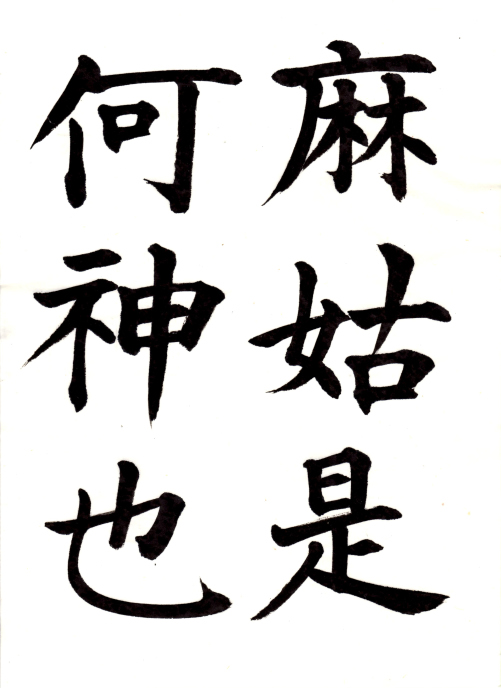 麻姑是
何神也